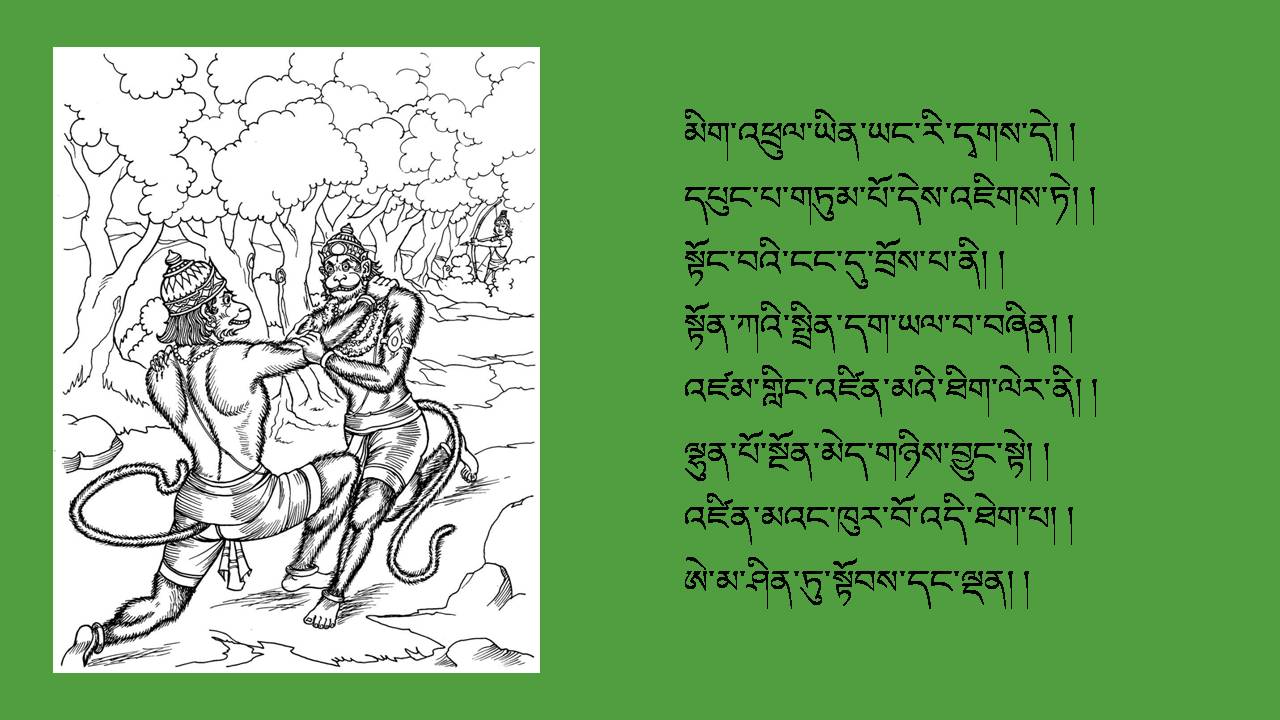 མིག་འཕྲུལ་ཡིན་ཡང་རི་དྭགས་དེ། །
དཔུང་པ་གཏུམ་པོ་དེས་འཇིགས་ཏེ། །
སྟོང་བའི་ངང་དུ་བྲོས་པ་ནི། །
སྟོན་ཀའི་སྤྲིན་དག་ཡལ་བ་བཞིན། །
འཛམ་གླིང་འཛིན་མའི་ཐིག་ལེར་ནི། །
ལྷུན་པོ་སྔོན་མེད་གཉིས་བྱུང་སྟེ། །
འཛིན་མའང་ཁུར་བོ་འདི་ཐེག་པ། །
ཨེ་མ་ཤིན་ཏུ་སྟོབས་དང་ལྡན། །